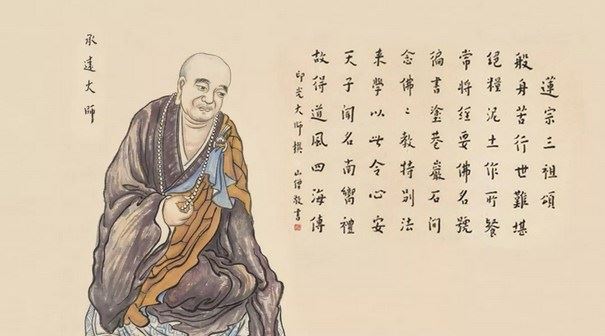 承遠大師
蓮宗三祖頌
般舟苦行世難堪
絕糧泥土作所餐
常將經要佛名號
徧書塗巷巖石間
念佛〻教特別法
來學以此令心安
天子聞名南嚮禮
故得道風四海傳
印光大師撰 山僧敬書